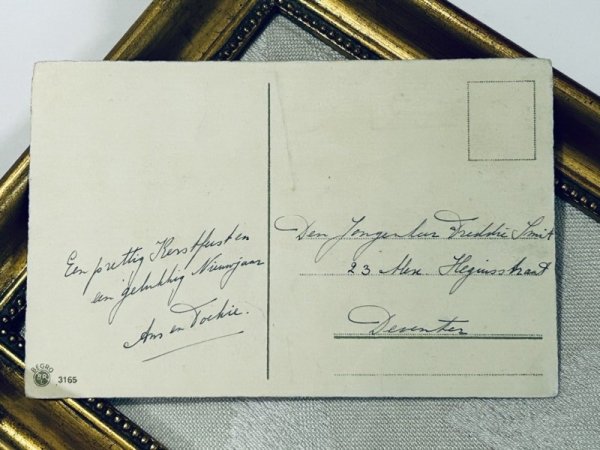 Een prettig Kerstfeest en
een gelukkig Nieuwjaar
Ans en Tockie.
Den Jongenheer Freddie Smit
23 Alex. Hegiusstraat
Deventer
BEGRO
3165